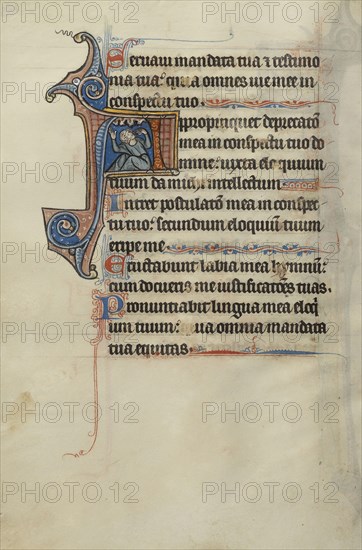 Servavi mandata tua et testimo
nia tua: quia omnes vie mee in
conspectu tuo.
Appropinquet deprecatō
mea in conspectu tuo do
mine: iuxta eloquium
tuum da michi intellectum
Intret postulatō mea in conspec
tu tuo: secundum eloquium tuum
eripe me
Eructabunt labia mea hymnum:
cum docueris me iustificatōes tuas.
Pronuntiabit lingua mea eloq
ium tuum: quia omnia mandata
tua equitas.
PHOTO 12